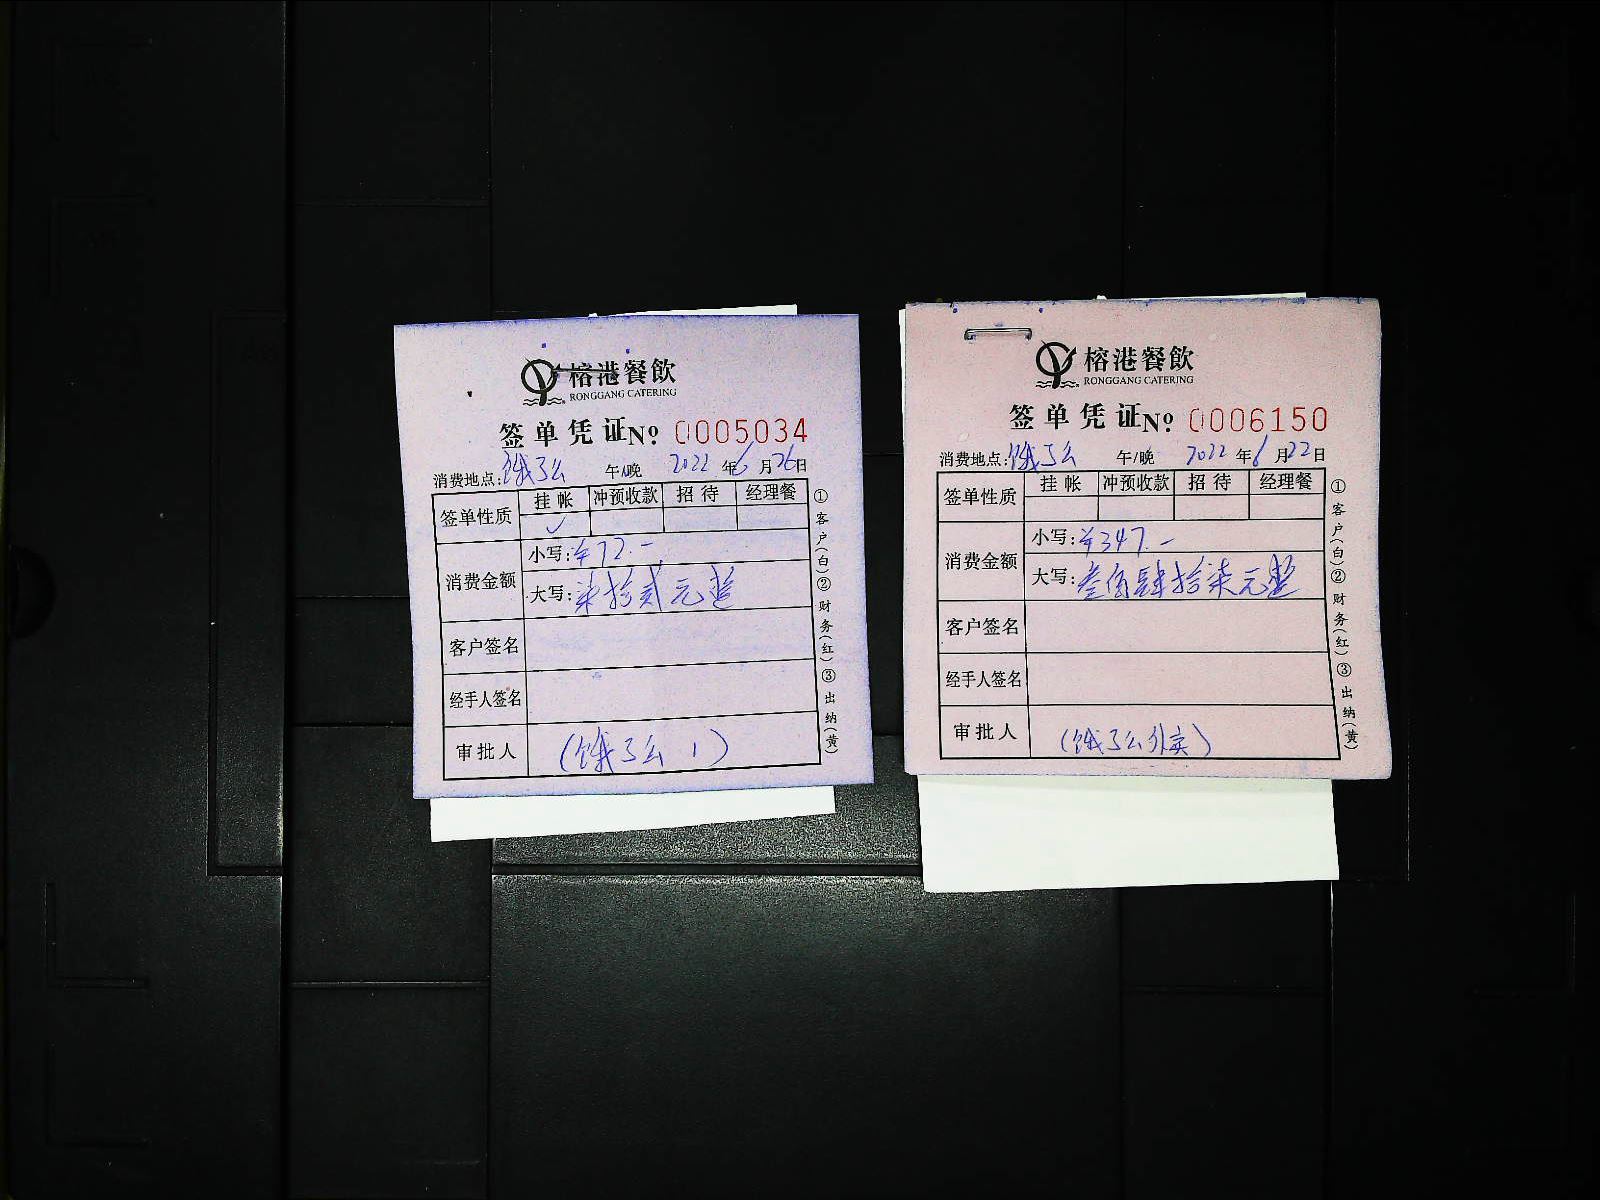 榕港餐飲
RONGGANG CATERING
签单凭证 No 0005034
消费地点:饿了么 午/晚 2022 年 6 月 26 日
签单性质 挂帐 冲预收款 招待 经理餐
✓
消费金额 小写:¥72.-
大写:柒拾贰元整
客户签名
经手人签名
审批人 (饿了么1)
①客户(白)②财务(红)③出纳(黄)
榕港餐飲
RONGGANG CATERING
签单凭证 No 0006150
消费地点:饿了么 午/晚 2022 年 6 月 22 日
签单性质 挂帐 冲预收款 招待 经理餐
消费金额 小写:¥347.-
大写:叁佰肆拾柒元整
客户签名
经手人签名
审批人 (饿了么外卖)
①客户(白)②财务(红)③出纳(黄)